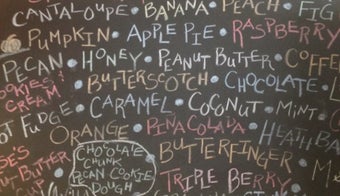 CANTALOUPE • BANANA • PEACH • FIG
PUMPKIN • APPLE PIE • RASPBERRY
PECAN • HONEY • PEANUT BUTTER • COFFE
COOKIES &
CREAM • BUTTERSCOTCH • CHOCOLATE •
OT FUDGE • CARAMEL • COCONUT • MINT •
ORANGE • PIÑA COLADA • HEATH BA
CHOCOLATE
CHUNK
PECAN COOKIE
DOUGH
UT BUTTER
BUTTERFINGER •
TRIPLE BERRY